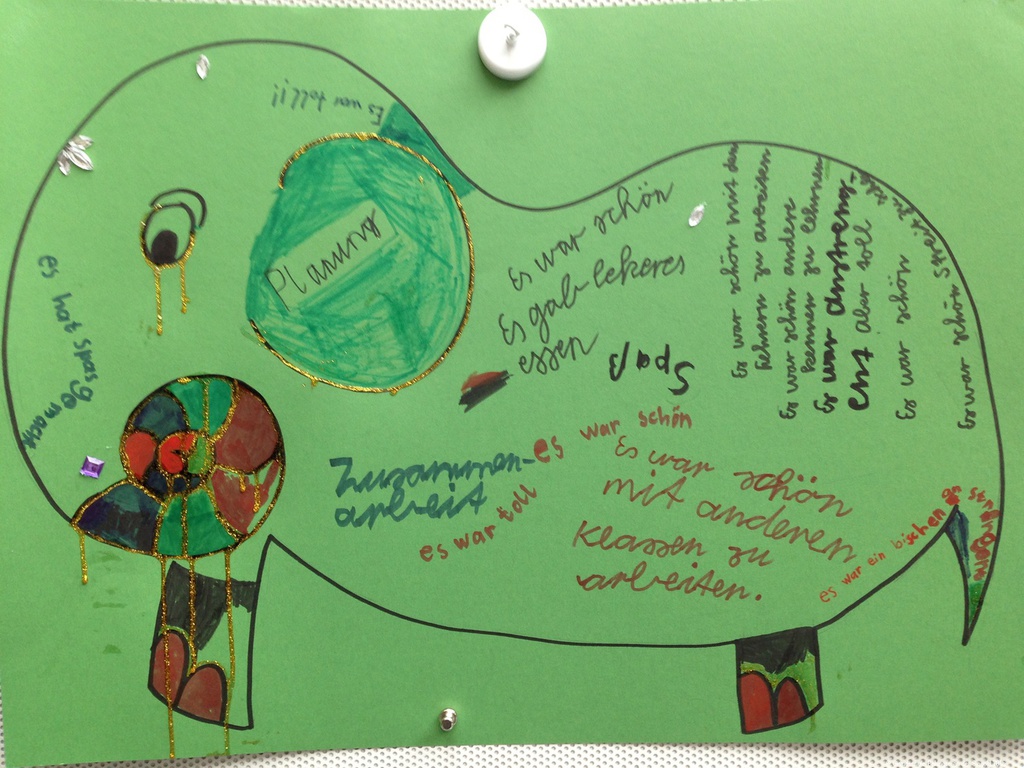 Es war toll!
Planung
es hat spas gemacht
Es war schön
Es gab lekeres
essen
Spaß
Zusammen-
arbeit
es war schön
es war toll
Es war schön
mit anderen
Klassen zu
arbeiten.
es war ein bischen an
strengend
Es war schön mit den
zu arbeiten
Es war schön andere
kennen zu lehnen
Es war anstreng-
ent aber toll
Es war schön
Es war schön